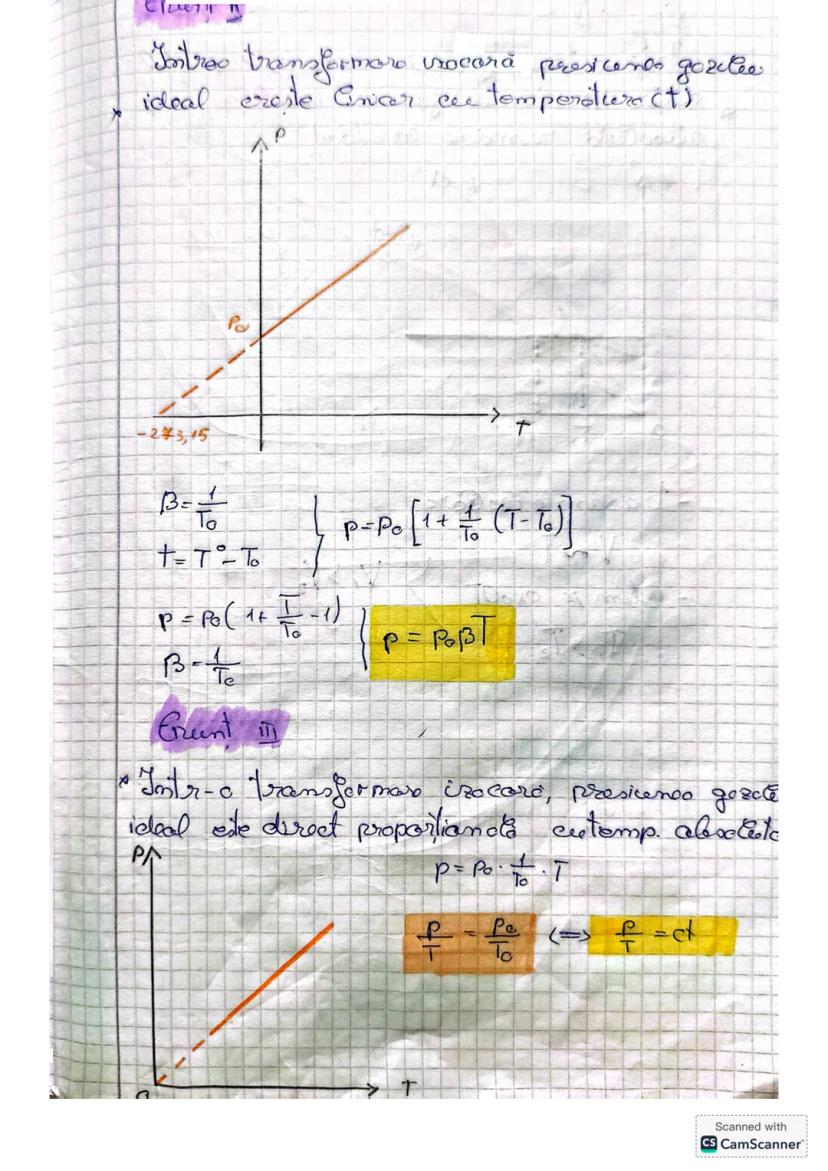 Enunț II
Într-o transformare izocoră presiunea gazului
* ideal crește liniar cu temperatura (t)
P
P₀
-273,15
T
β = 1/T₀
t = T° - T₀
p = p₀ [1 + 1/T₀ (T - T₀)]
p = p₀ (1 + T/T₀ - 1)
β = 1/T₀
p = p₀βT
Enunț III
* Într-o transformare izocoră, presiunea gazului
ideal este direct proporțională cu temp. absolută
P
p = p₀ · 1/T₀ · T
p/T = p₀/T₀ <=> p/T = ct
T
Scanned with
CS CamScanner